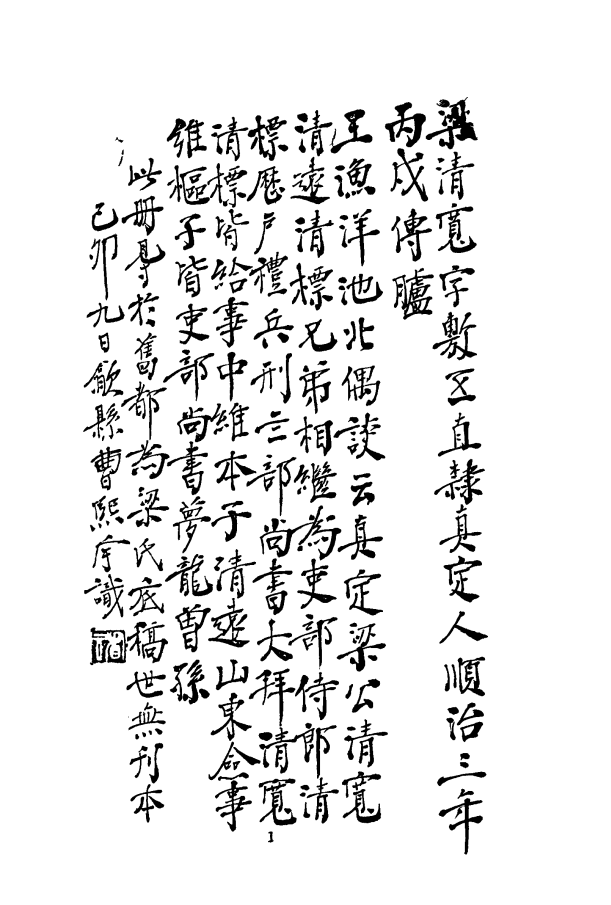 梁清寬字敷五直隸真定人順治三年
丙戌傳臚
王漁洋池北偶談云真定梁公清寬
清遠清標兄弟相繼為吏部侍郎清
標歷戶禮兵刑三部尚書大拜清寬
清標皆給事中維本子清遠山東僉事
維樞子皆吏部尚書夢龍曾孫
此冊得於舊都為梁氏底稿世無刊本
己卯九日歙縣曹熙宇識
1